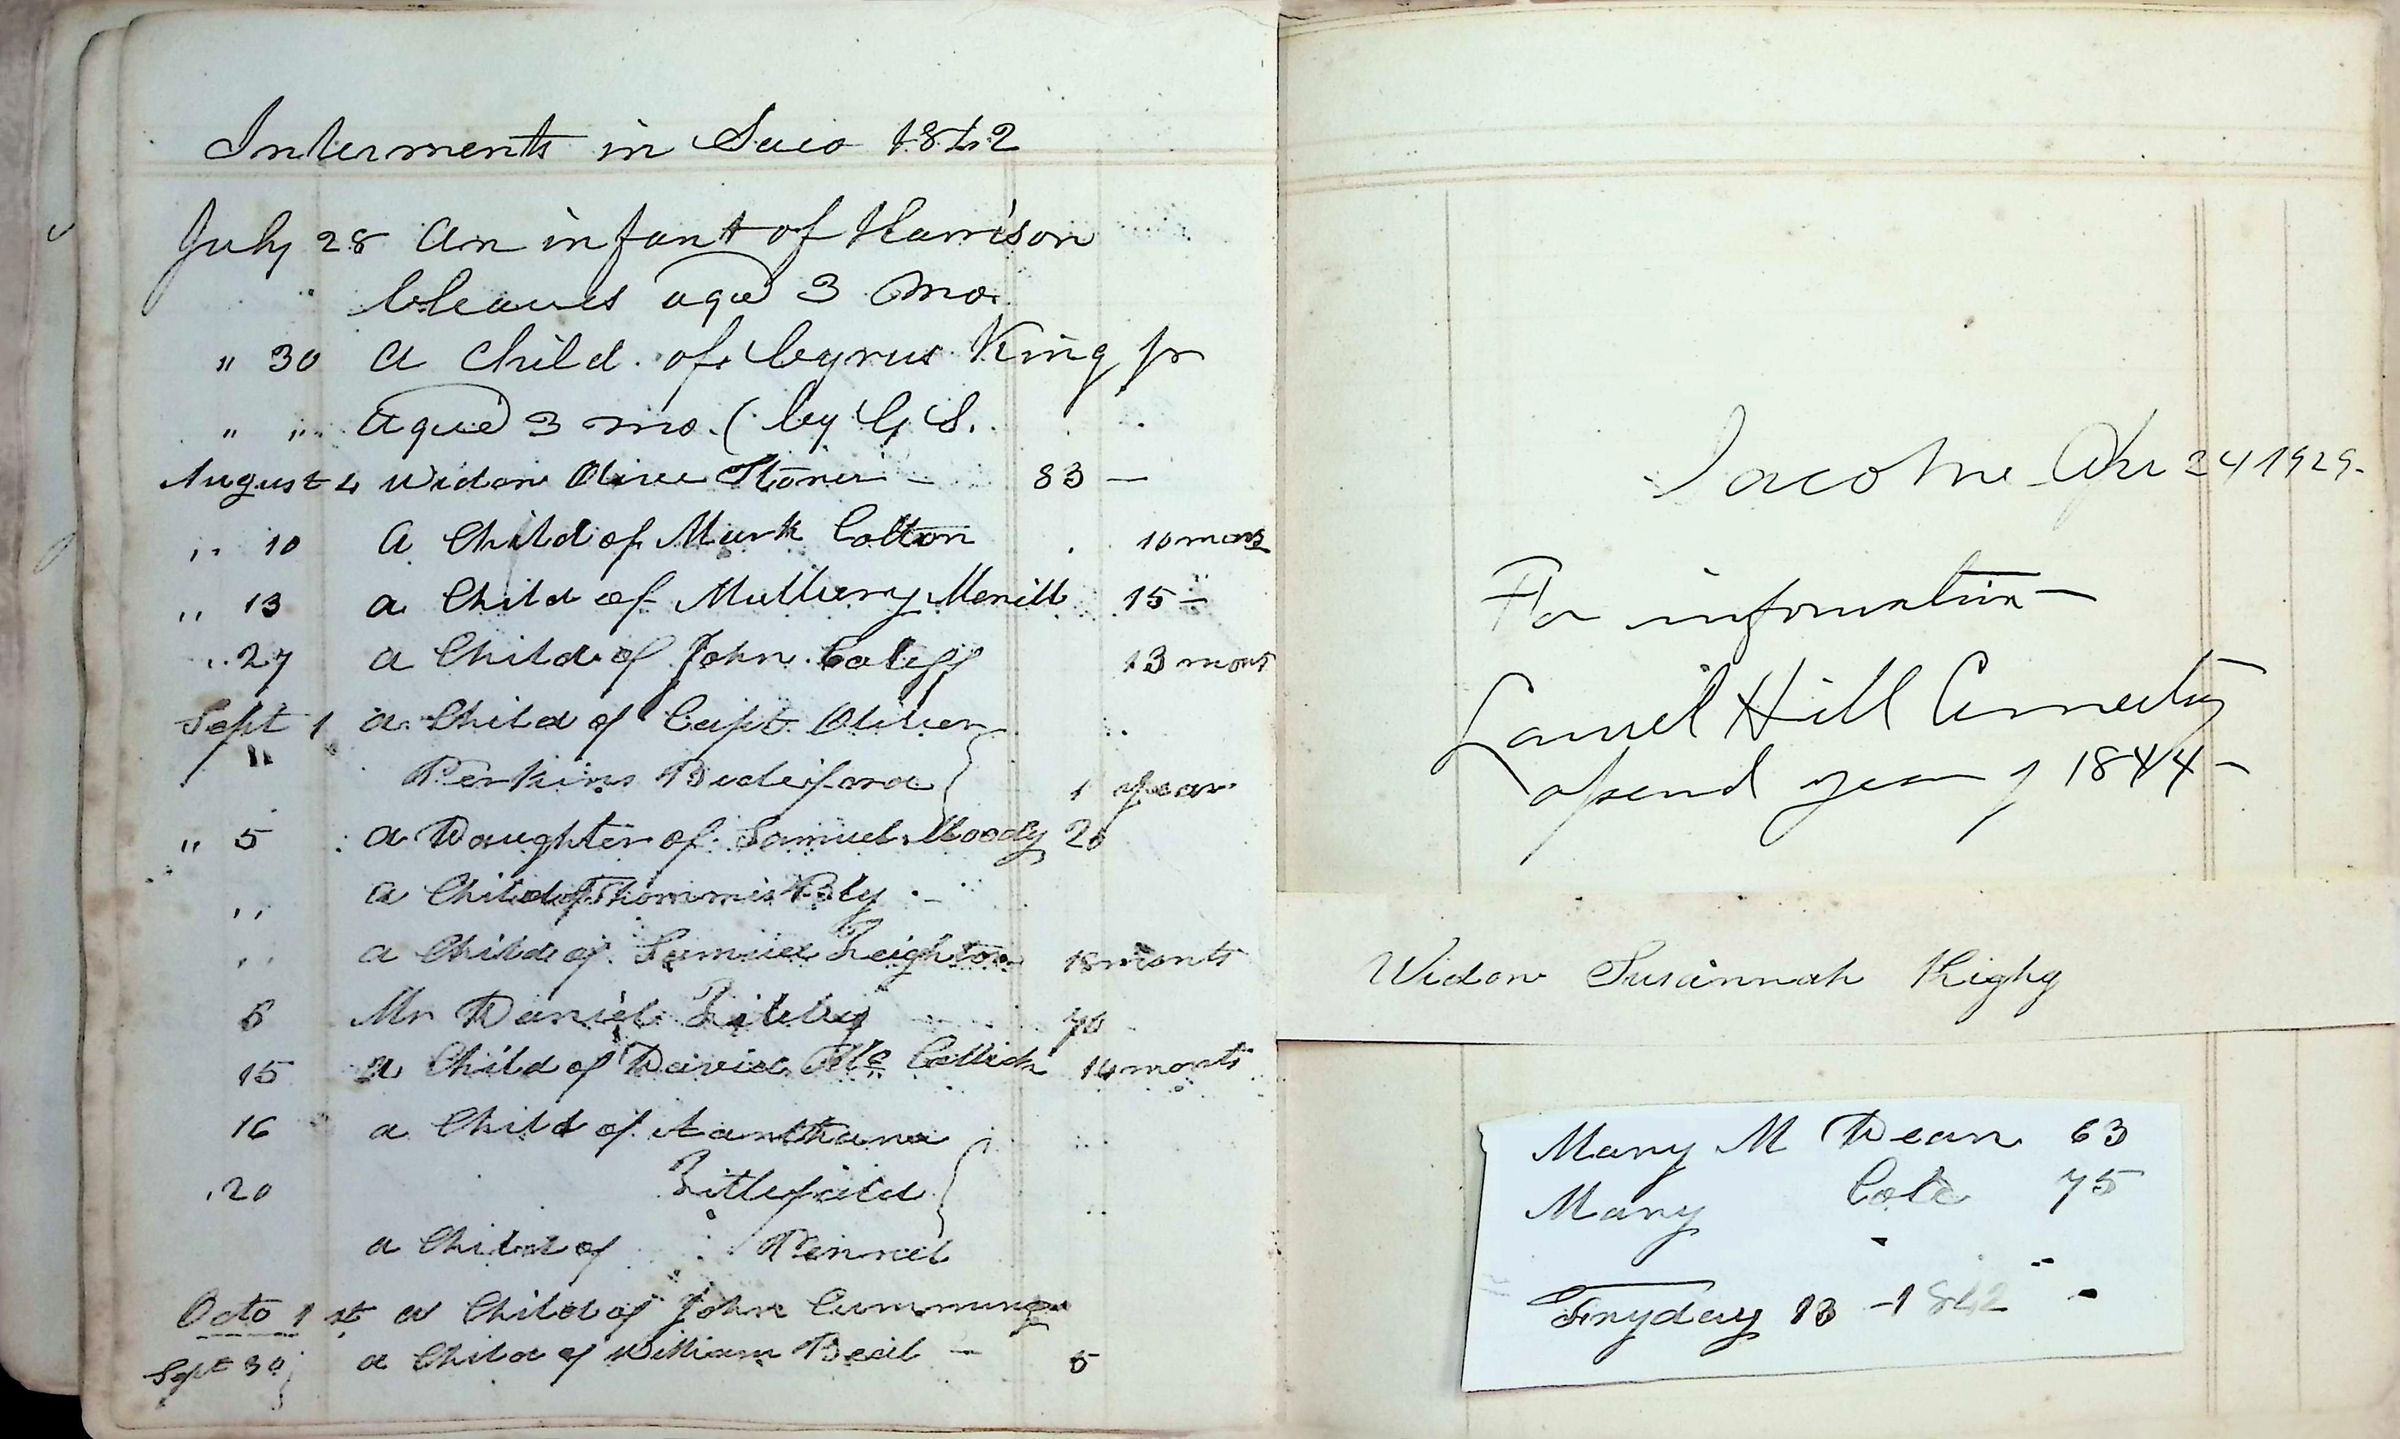 Interments in Saco 1842
July 28 An infant of Harrison
Cleaves aged 3 mo.
" 30 A Child of Cyrus King jr
" " aged 3 mo. ( by G S.
August 4 Widow Olive Storer - 83 -
" 10 A Child of Mark Colton 10 mons
" 13 a Child of Mulbury Merrill 15 -
" 27 a Child of John Caleff 13 mons
Sept 1 a Child of Capt Oliver
" Perkins Bideford 1 year
" 5 a Daughter of Samuel Moody 20
" a Child of Thommis Bly -
" a Child of Samuel Leighton 18 monts
6 Mr Daniel 70
15 a Child of David Mc 14 monts
16 a Child of
20 Littlefield
a Child of Pennel
Octo 1 st a Child of John Cummings
Sept 30 a Child of William Beal - 5
Saco Me Apr 24 1929.
For information -
Laurel Hill Cemetery
opened year of 1844 -
Widow Susannah
Mary M Dean 63
Mary Cole 75
Fryday 13 - 1842 -